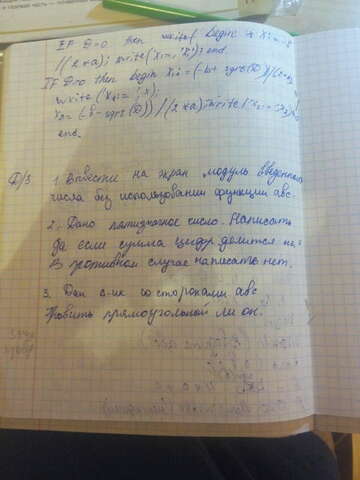 IF D=0 then write( begin x:= -b
/(2*a); write('x1=', x); end.
IF D>0 then begin x1:=(-b+ sqrt(D))/(2*a)
write ('x1=', x);
x2=(-b-sqrt(D))/(2*a); write('x2=', x2)
end.
Д/З 1. Вывести на экран модуль введенного
числа без использования функции авс.
2. Дано пятизначное число. Написать
да если сумма цифр делится на
В противном случае написать нет.
3. Дан в-ик со сторонами авс
прямоугольный ли он.